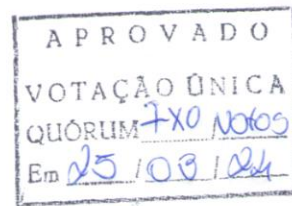 APROVADO
VOTAÇÃO ÚNICA
QUÓRUM 7X0 Votos
Em 25 / 03 / 24